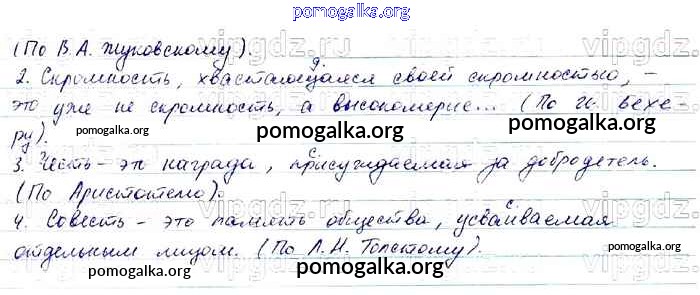 pomogalka.org
(По В.А. Жуковскому).
2. Скромность, хвастающаяся своей скромностью, –
это уже не скромность, а высокомерие... (По И. Бехе-
ру).
pomogalka.org pomogalka.org pomogalka.org
3. Честь – эт награда, присуждаемая за добродетель.
(По Аристотелю).
pomogalka.org pomogalka.org
4. Совесть – это память общества, усваиваемая
отдельным лицом. (По Л.Н. Толстому).
pomogalka.org pomogalka.org pomogalka.org